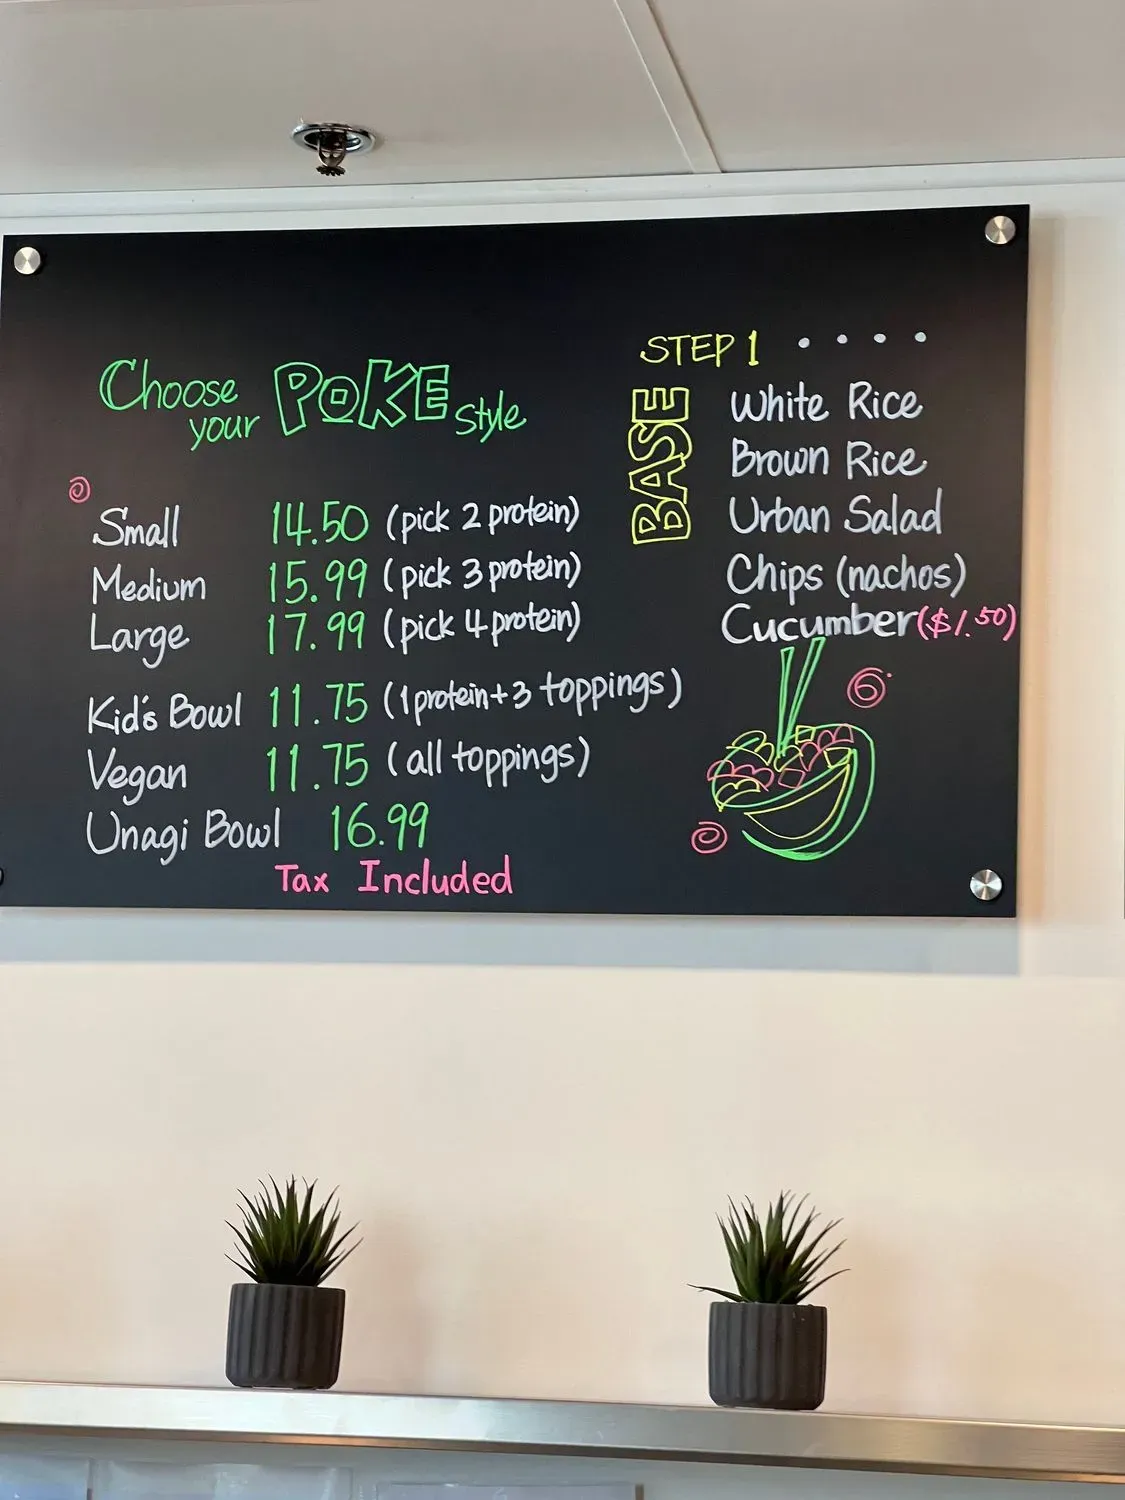 Choose
your POKE style
Small 14.50 (pick 2 protein)
Medium 15.99 (pick 3 protein)
Large 17.99 (pick 4 protein)
Kid's Bowl 11.75 (1 protein + 3 toppings)
Vegan 11.75 (all toppings)
Unagi Bowl 16.99
Tax Included
STEP 1 ....
BASE
White Rice
Brown Rice
Urban Salad
Chips (nachos)
Cucumber ($1.50)